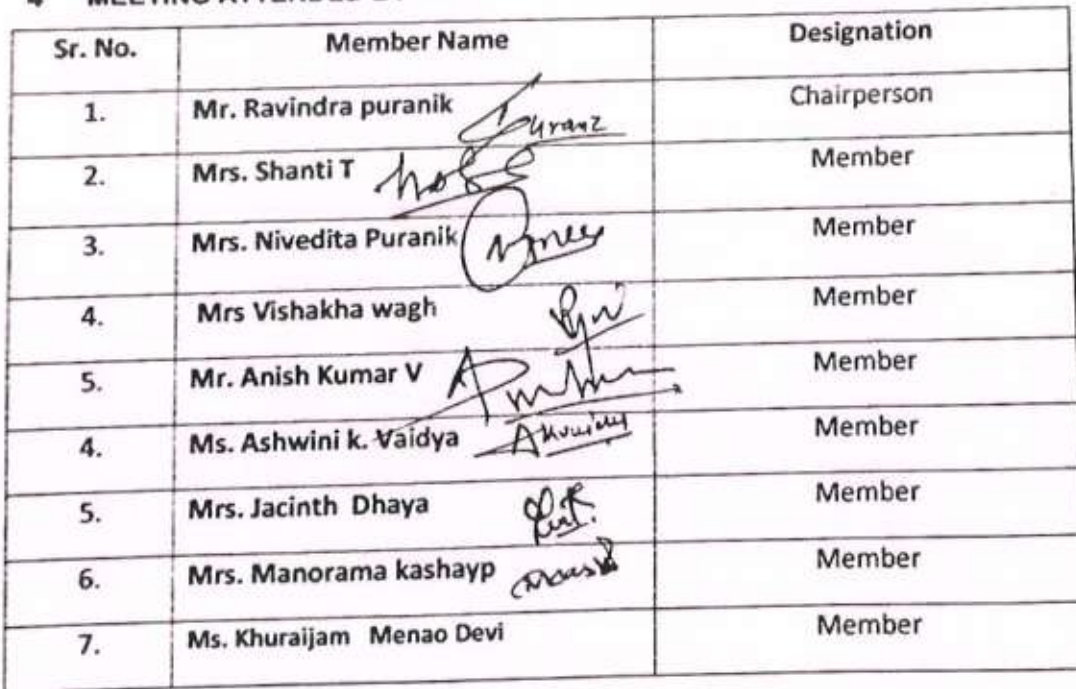 4 MEETING ATTENDED
Sr. No. Member Name Designation
1. Mr. Ravindra puranik Chairperson
2. Mrs. Shanti T Member
3. Mrs. Nivedita Puranik Member
4. Mrs Vishakha wagh Member
5. Mr. Anish Kumar V Member
4. Ms. Ashwini k. Vaidya Member
5. Mrs. Jacinth Dhaya Member
6. Mrs. Manorama kashayp Member
7. Ms. Khuraijam Menao Devi Member